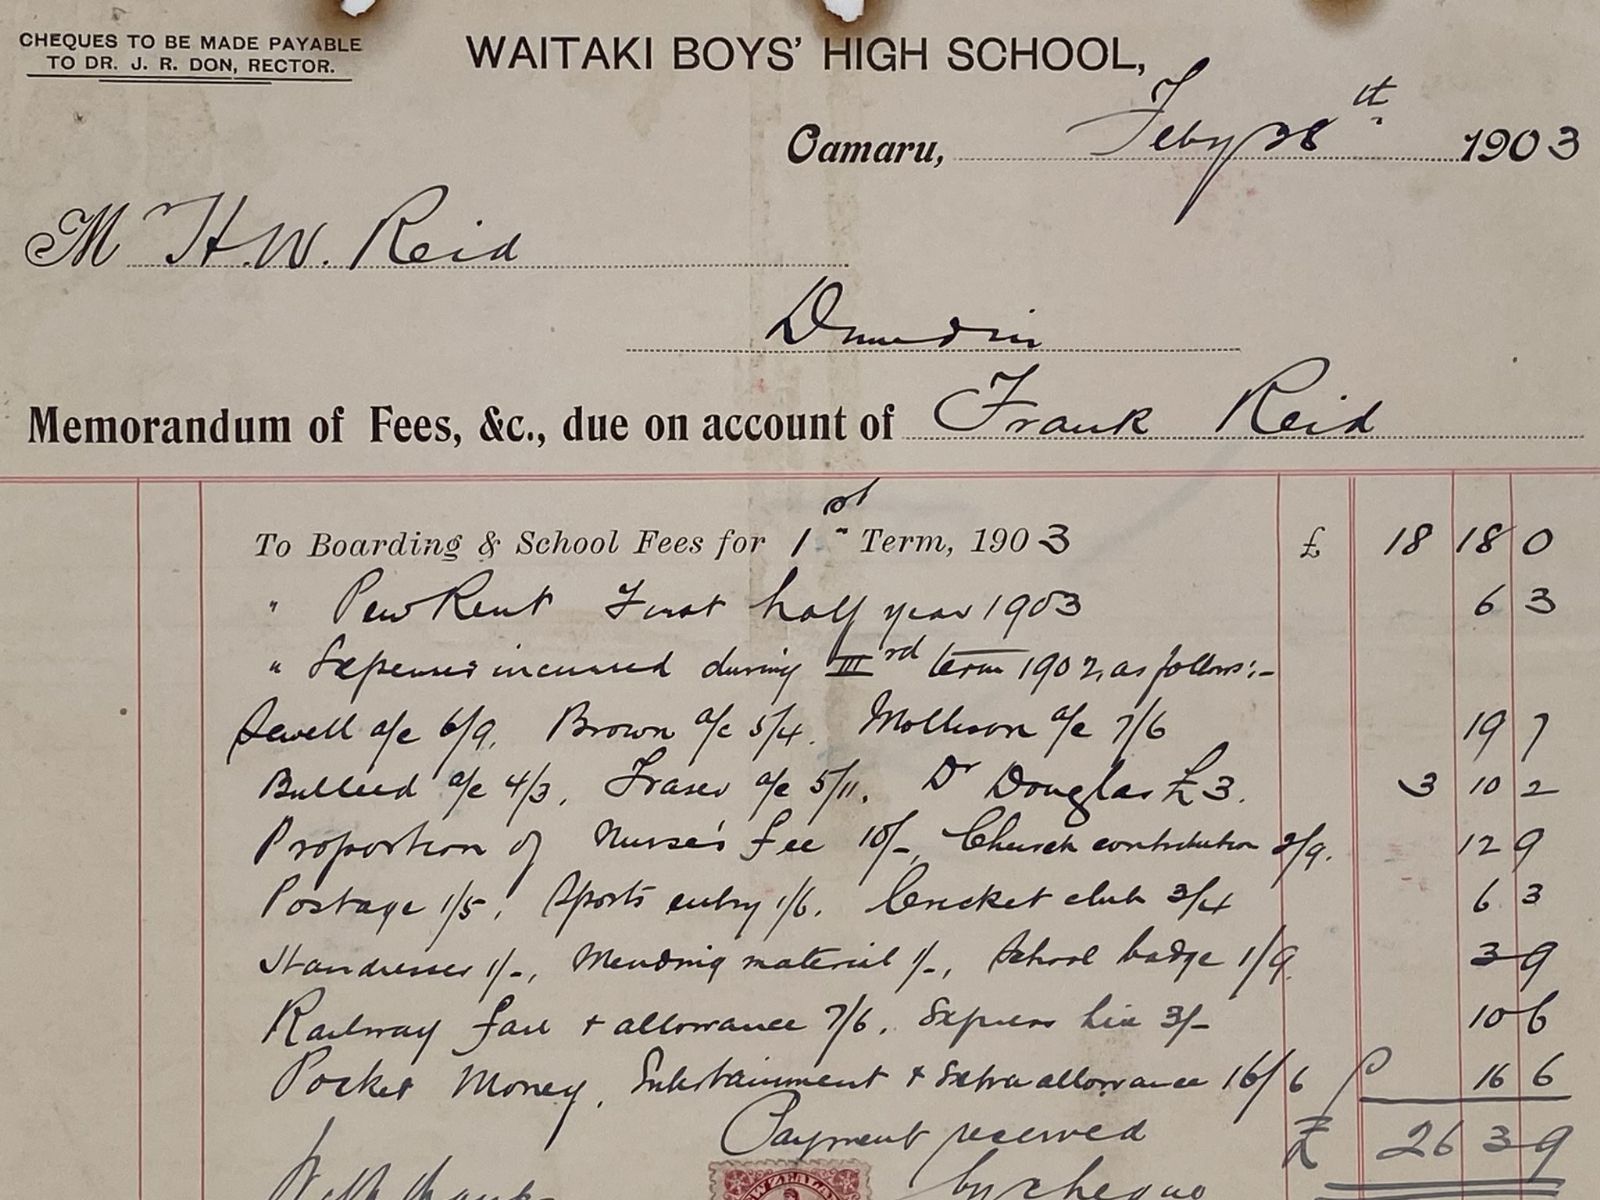 CHEQUES TO BE MADE PAYABLE
TO DR. J. R. DON, RECTOR.
WAITAKI BOYS' HIGH SCHOOL,
Oamaru, Feby 28th 1903
M H. W. Reid
Dunedin
Memorandum of Fees, &c., due on account of Frank Reid
To Boarding & School Fees for 1st Term, 1903 £ 18 18 0
" Pew Rent First half year 1903 6 3
" Expenses incurred during IIIrd term 1902, as follows:-
Sewell a/c 6/9. Brown a/c 5/4. Mollison a/c 7/6 19 7
Bulleid a/c 4/3, Fraser a/c 5/11. Dr Douglas £3. 3 10 2
Proportion of Nurse's fee 10/-, Church contribution 2/9. 12 9
Postage 1/5, Sports entry 1/6. Cricket club 3/4 6 3
Hairdresser 1/-, Mending material 1/-, School badge 1/9. 3 9
Railway fare + allowance 7/6. Express hire 3/- 10 6
Pocket Money, Entertainment + Extra allowance 16/6 16 6
Payment received £ 26 3 9
With thanks by cheque